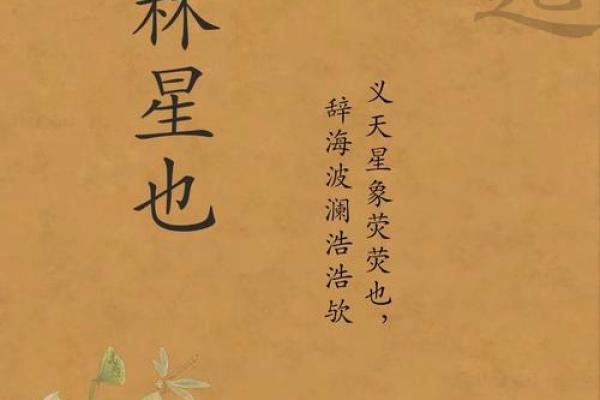 义天星象荧荧也，
辞海波澜浩浩欤
星也